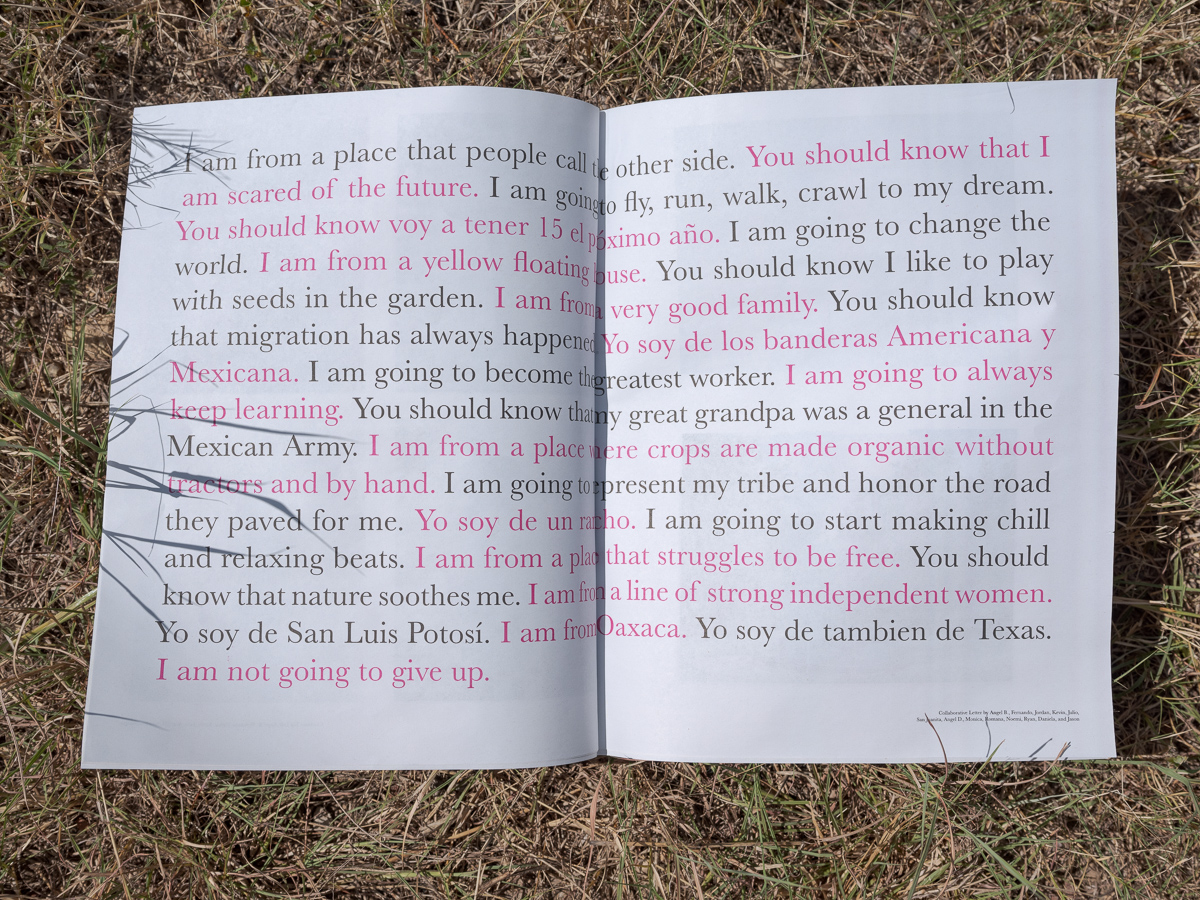 I am from a place that people call the other side. You should know that I
am scared of the future. I am going to fly, run, walk, crawl to my dream.
You should know voy a tener 15 el póximo año. I am going to change the
world. I am from a yellow floating house. You should know I like to play
with seeds in the garden. I am from a very good family. You should know
that migration has always happened. Yo soy de los banderas Americana y
Mexicana. I am going to become the greatest worker. I am going to always
keep learning. You should know that my great grandpa was a general in the
Mexican Army. I am from a place were crops are made organic without
tractors and by hand. I am going to represent my tribe and honor the road
they paved for me. Yo soy de un rancho. I am going to start making chill
and relaxing beats. I am from a place that struggles to be free. You should
know that nature soothes me. I am from a line of strong independent women.
Yo soy de San Luis Potosí. I am from Oaxaca. Yo soy de tambien de Texas.
I am not going to give up.
Collaborative Letter by Angel B., Fernando, Jordan, Kevin, Julio,
San Juanita, Angel D., Monica, Romana, Noema, Ryan, Daniela, and Jason